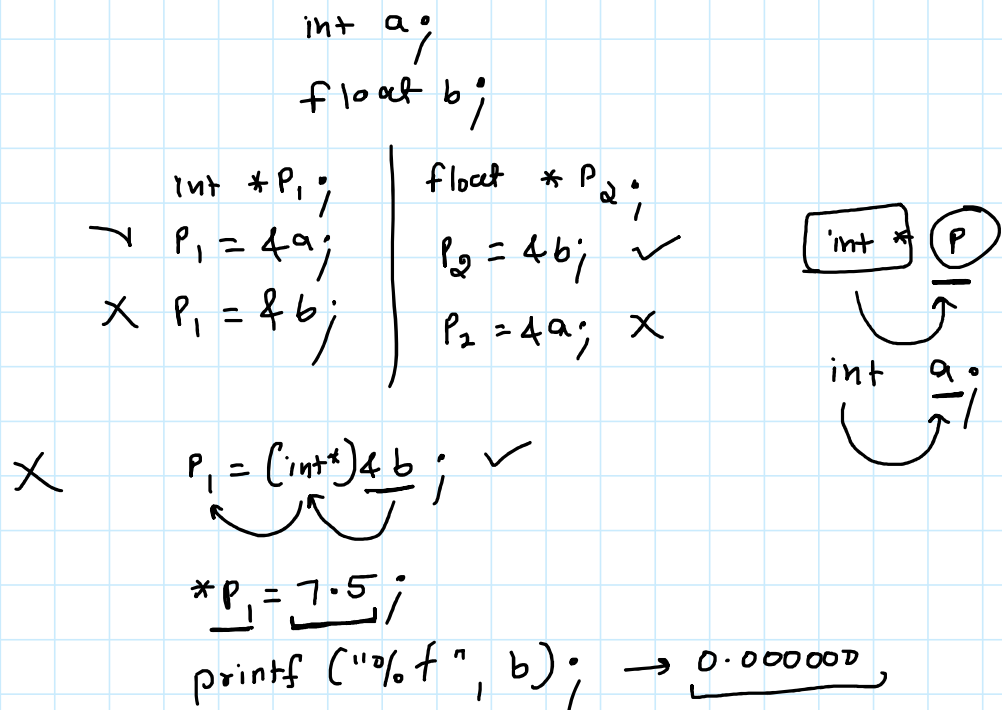 int a;
float b;
int *P1;
P1 = &a;
X P1 = &b;
float * P2;
P2 = &b; ✓
P2 = &a; X
int * P
int a;
X P1 = (int*)&b; ✓
*P1 = 7.5;
printf ("%f", b); → 0.000000